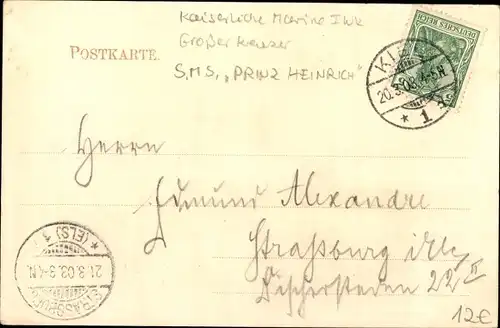 Kaiserliche Marine I WK
Großer Kreuzer
S.M.S. „PRINZ HEINRICH“
POSTKARTE.
DEUTSCHES REICH
KIEL
20.3.03.4-5N.
* 1
Herrn
Edmund Alexandre
Straßburg i/Els
22 II
* (ELS) 1
21.3.03.3-4N.
STRASSBURG
12€